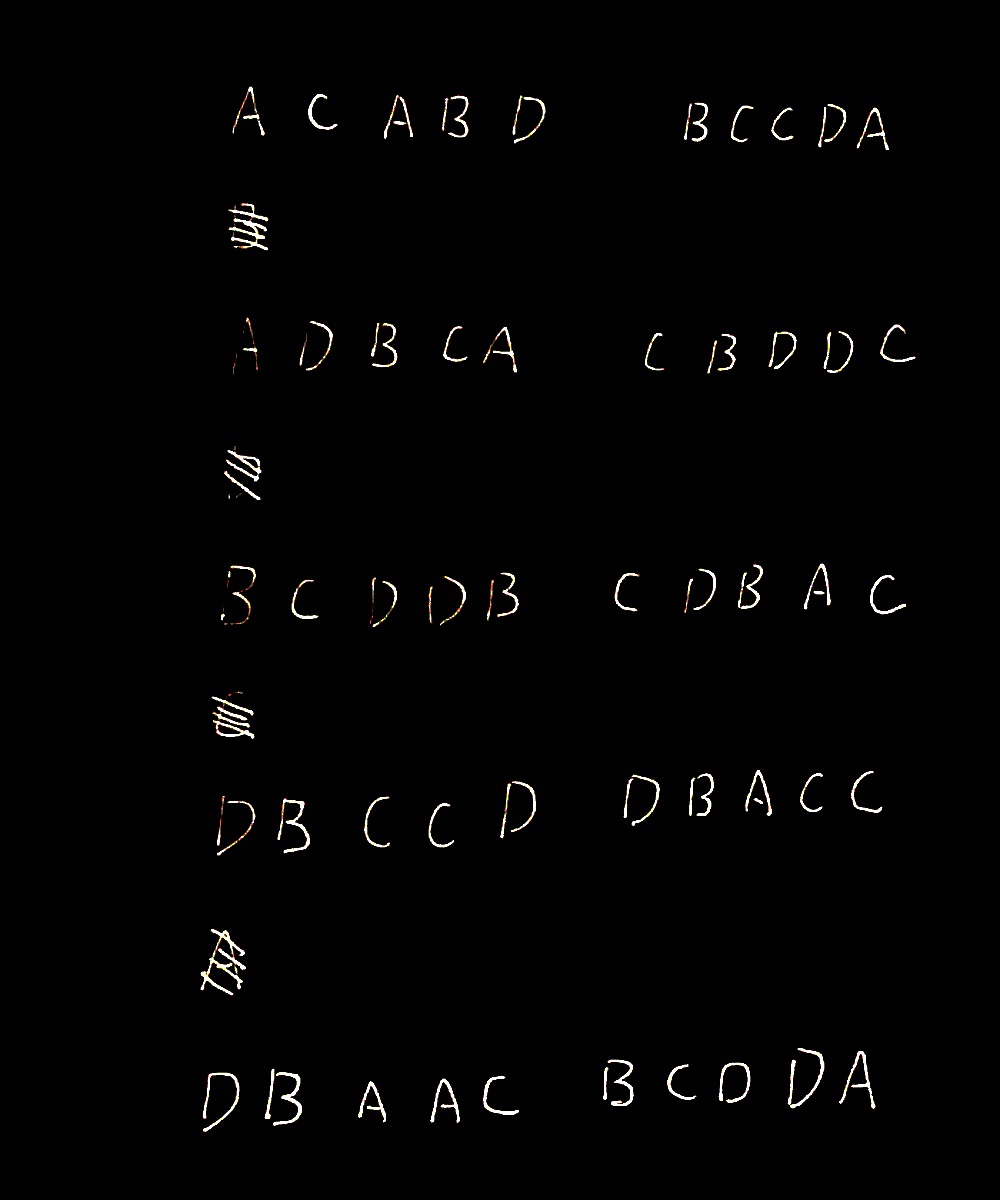 A C A B D B C C D A
A D B C A C B D D C
B C D D B C D B A C
D B C C D D B A C C
D B A A C B C D D A